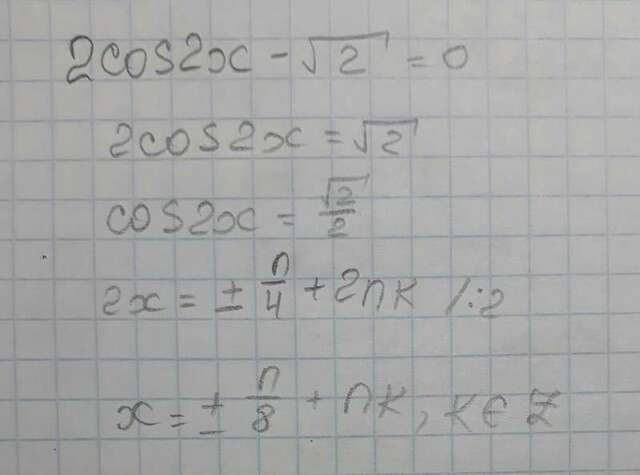 2cos2x - √2 = 0
2cos2x = √2
cos2x = √2/2
2x = ± π/4 + 2πk /:2
x = ± π/8 + πk, k ∈ Z